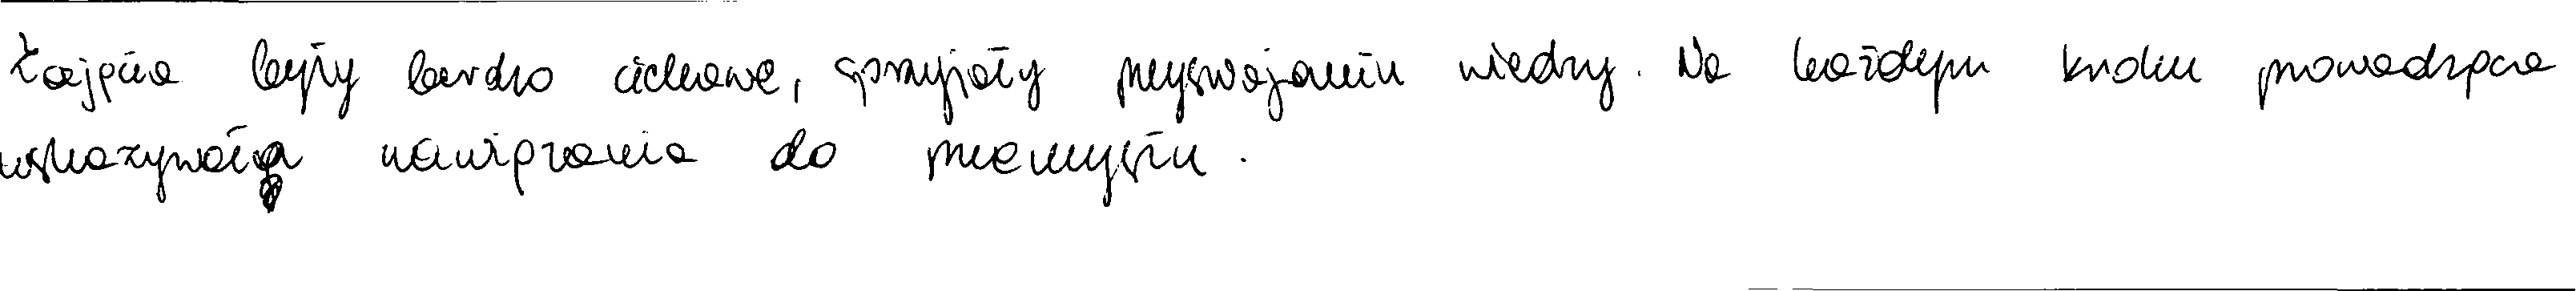 Zajęcia były bardzo ciekawe, sprzyjały przyswajaniu wiedzy. Na każdym kroku prowadząca
wskazywała nawiązania do przemysłu.